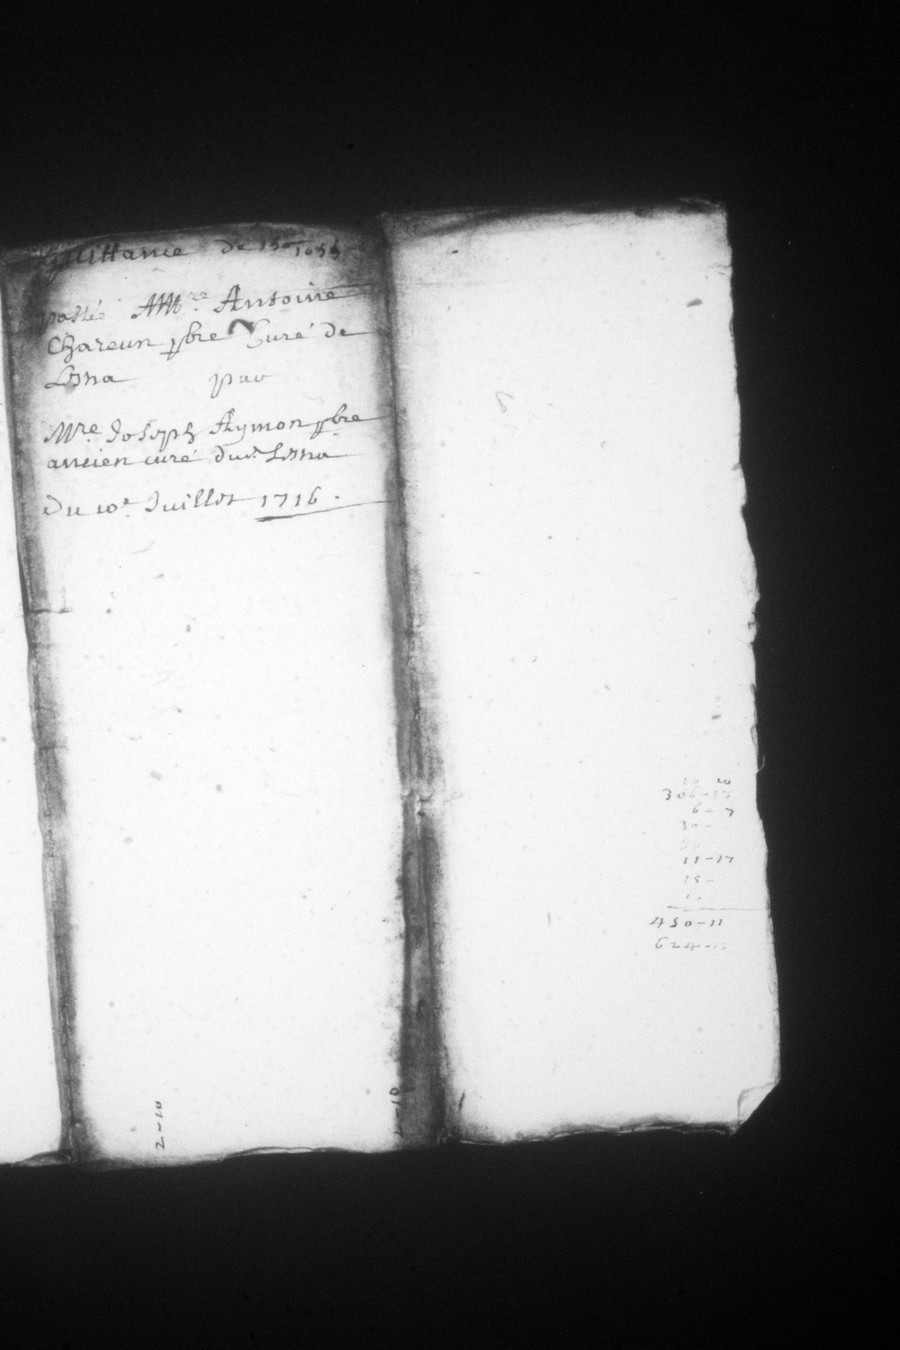 Quittance de 150
passé A Mre. Antoine
Chareun pbre Curé de
Lesna par
Mre Joseph Aymon pbre
ancien curé dud. Lesna
Du 10e. Juillet 1716.
306-17
6-7
30-
11-17
15-
450-11
624-
2-10